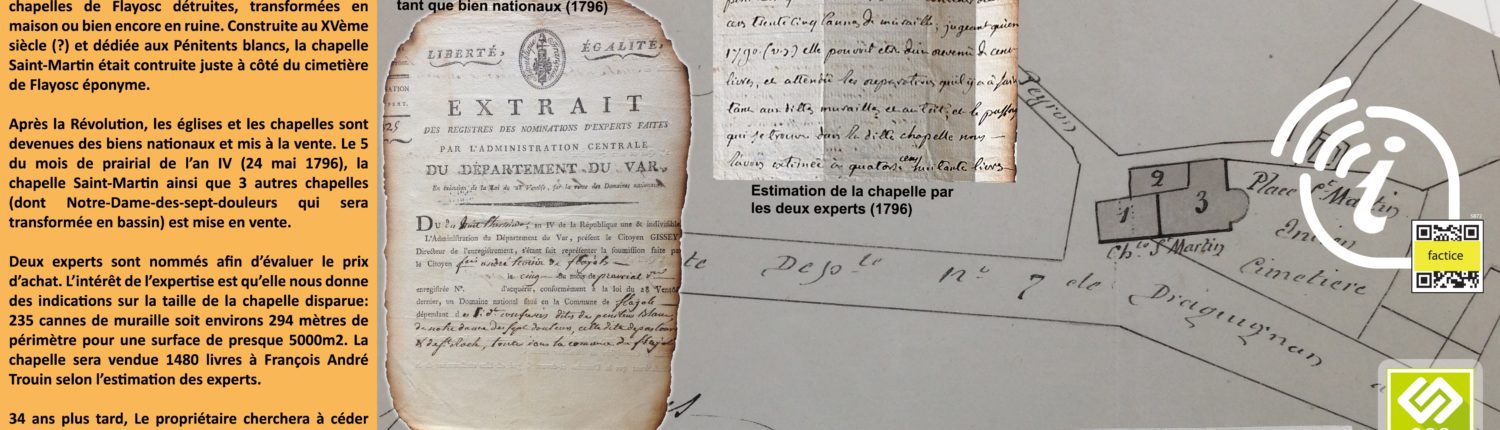 chapelles de Flayosc détruites, transformées en
maison ou bien encore en ruine. Construite au XVème
siècle (?) et dédiée aux Pénitents blancs, la chapelle
Saint-Martin était contruite juste à côté du cimetière
de Flayosc éponyme.
Après la Révolution, les églises et les chapelles sont
devenues des biens nationaux et mis à la vente. Le 5
du mois de prairial de l'an IV (24 mai 1796), la
chapelle Saint-Martin ainsi que 3 autres chapelles
(dont Notre-Dame-des-sept-douleurs qui sera
transformée en bassin) est mise en vente.
Deux experts sont nommés afin d'évaluer le prix
d'achat. L'intérêt de l'expertise est qu'elle nous donne
des indications sur la taille de la chapelle disparue:
235 cannes de muraille soit environs 294 mètres de
périmètre pour une surface de presque 5000m2. La
chapelle sera vendue 1480 livres à François André
Trouin selon l'estimation des experts.
34 ans plus tard, Le propriétaire cherchera à céder
tant que bien nationaux (1796)
LIBERTÉ, ÉGALITÉ,
EXTRAIT
DES REGISTRES DES NOMINATIONS D'EXPERTS FAITES
PAR L'ADMINISTRATION CENTRALE
DU DÉPARTEMENT DU VAR,
En exécution de la Loi du 28 Ventôse, sur la vente des Domaines nationaux
DU an IV de la République une & indivisible
L'Administration du Département du Var, présent le Citoyen GISSEY
Directeur de l'enregistrement, s'étant fait représenter la soumission faite par
le Citoyen
le cinq du mois de prairial
enregistrée N°. d'acquérir, conformément à la loi du 28 Ventôse
dernier, un Domaine national situé en la Commune de
dépendant d
de notre dame des sept douleurs, celle dite
& de St Roch, toute dans la commune de
cens trente cinq cannes de muraille, jugeant qu'en
1790. (v.s) elle pouvoit etre d'un revenu de cent
livres, et attendu les reparations qu'il y a à faire
tant aux dittes murailles et au toit, et le passage
qui se trouve dans la ditte chapelle nous
l'avons estimée à quatorze cens huitante livres
Estimation de la chapelle par
les deux experts (1796)
Peyron
Place St Martin
2
1
3
Ch. St Martin
Ancien
Cimetiere
Dep.le N° 7 de Draguignan
5872
factice